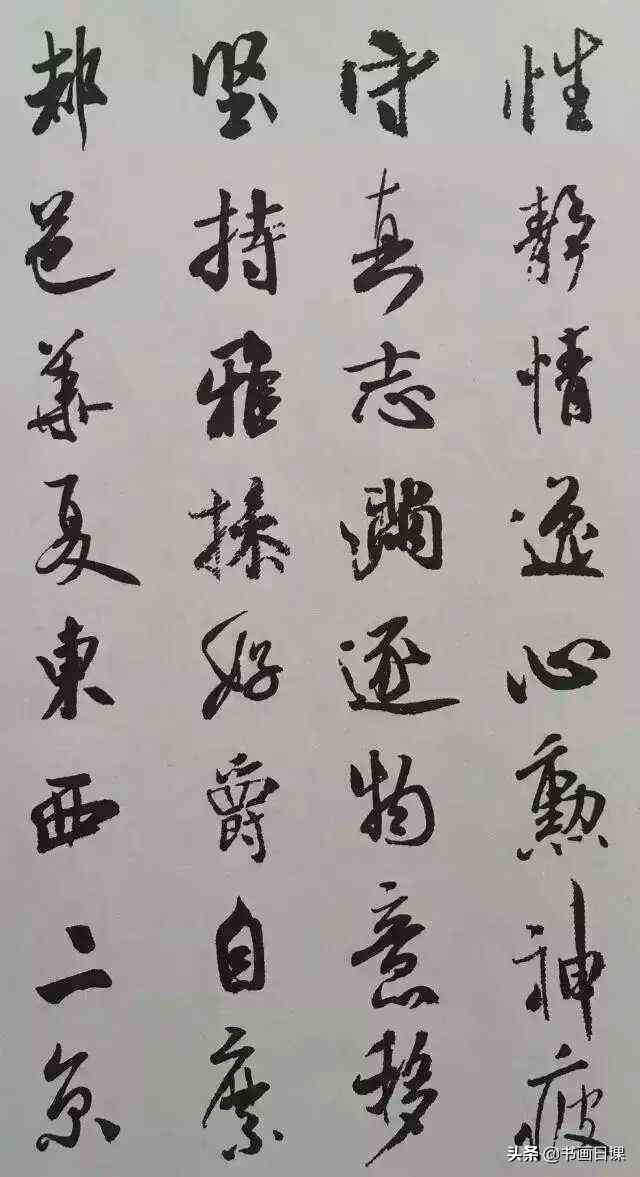 性靜情逸心勲神疲
守真志滿逐物意移
堅持雅操好爵自縻
都邑華夏東西二京
头条 @书画日课